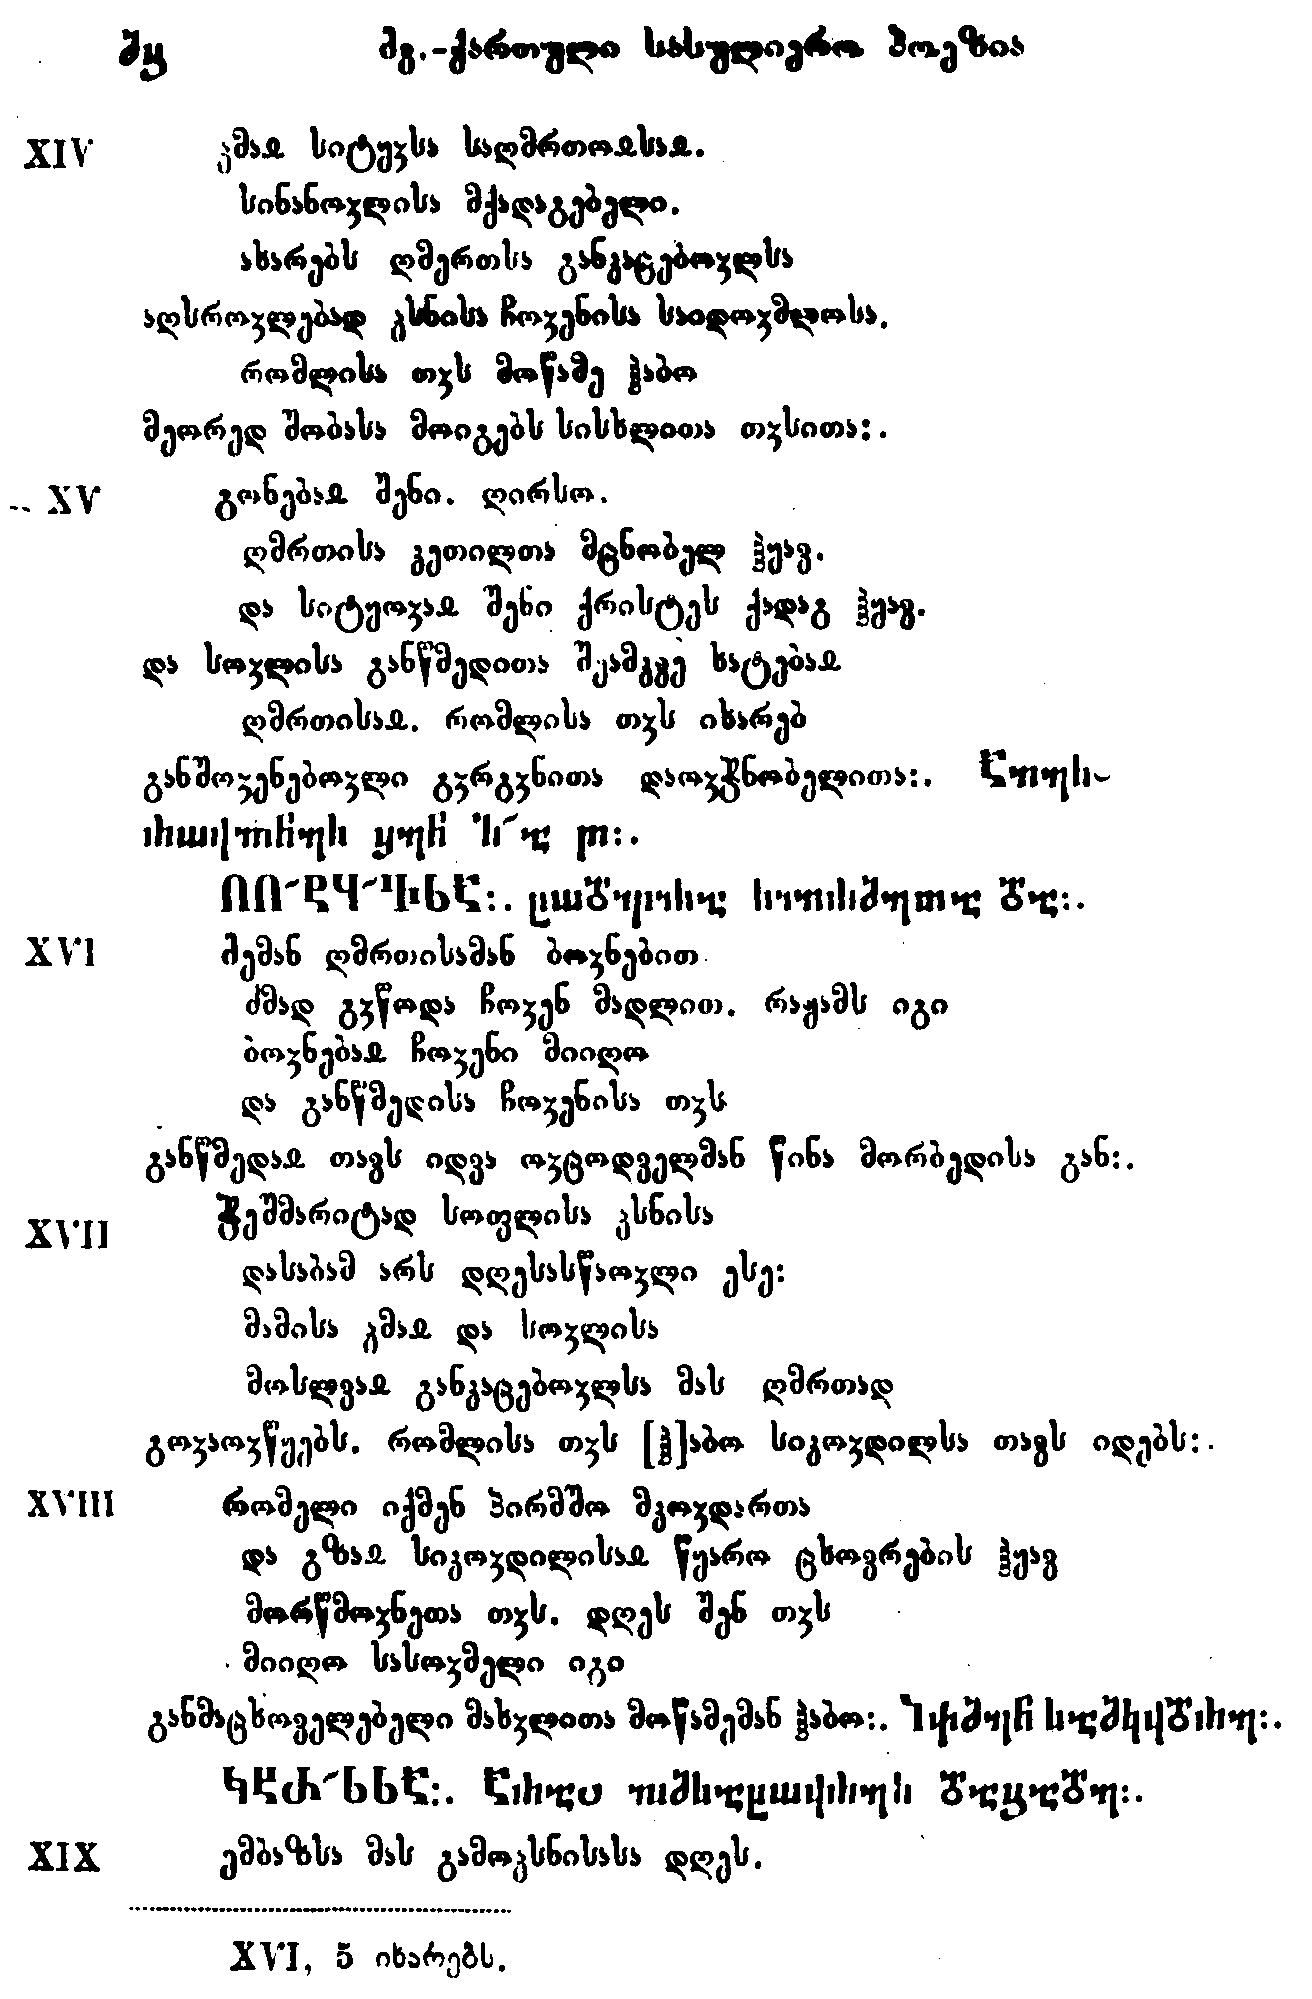 ძვ.-ქართული სასულიერო პოეზია
XIV ჴმაჲ სიტყჳსა საღმრთოჲსაჲ.
სინანოჳლისა მქადაგებელი.
ახარებს ღმერთსა განკაცებოჳლსა
აღსროჳლებად ჴსნისა ჩოჳენისა საიდოჳმლოსა.
რომლისა თჳს მოწამე ჰაბო
მეორედ შობასა მოიგებს სისხლითა თჳსითა:.
XV გონებაჲ შენი. ღირსო.
ღმრთისა კეთილთა მცნობელ ჰყავ.
და სიტყოჳაჲ შენი ქრისტეს ქადაგ ჰყავ.
და სოჳლისა განწმედითა შეამკვე ხატებაჲ
ღმრთისაჲ. რომლისა თჳს იხარებ
განშოჳენებოჳლი გჳრგჳნითა დაოჳჭნობელითა:.
XVI ძემან ღმრთისამან ბოჳნებით
ძმად გჳწოდა ჩოჳენ მადლით. რაჟამს იგი
ბოჳნებაჲ ჩოჳენი მიიღო
და განწმედისა ჩოჳენისა თჳს
განწმედაჲ თავს იდვა ოჳცოდველმან წინა მორბედისა გან:.
XVII ჭეშმარიტად სოფლისა ჴსნისა
დასაბამ არს დღესასწაოჳლი ესე:
მამისა ჴმაჲ და სოჳლისა
მოსლვაჲ განკაცებოჳლსა მას ღმრთად
გოჳაოჳწყებს. რომლისა თჳს [ჰ]აბო სიკოჳდილსა თავს იდებს:.
XVIII რომელი იქმენ პირმშო მკოჳდართა
და გზაჲ სიკოჳდილისაჲ წყარო ცხოვრების ჰყავ
მორწმოჳნეთა თჳს. დღეს შენ თჳს
მიიღო სასოჳმელი იგი
განმაცხოველებელი მახჳლითა მოწამემან ჰაბო:.
XIX ემბაზსა მას გამოჴსნისასა დღეს.
XVI, 5 იხარებს.